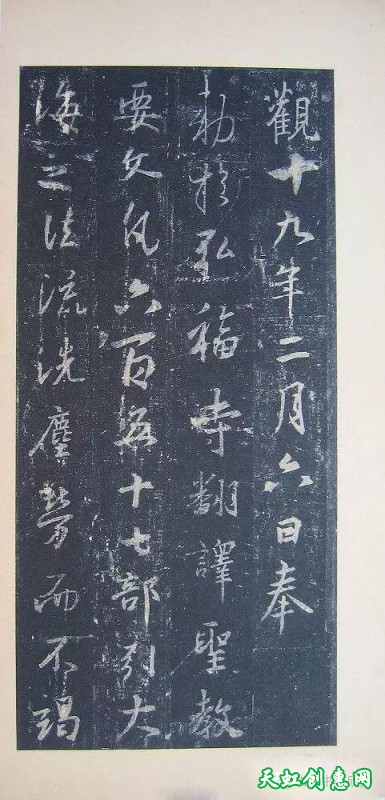 觀十九年二月六日奉
勅於弘福寺翻譯聖教
要文凡六百五十七部引大
海之法流洗塵勞而不竭
天虹创意网